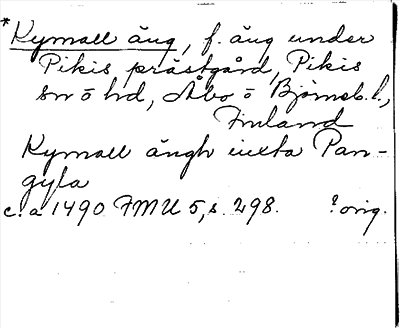 *Kymall äng, f. äng under
Pikis prästgård, Pikis
sn o hd, Åbo o Björneb. l.,
Finland
Kymall ängh iuxta Pan-
gyla
c:a 1490 FMU 5, s. 298. ?orig.